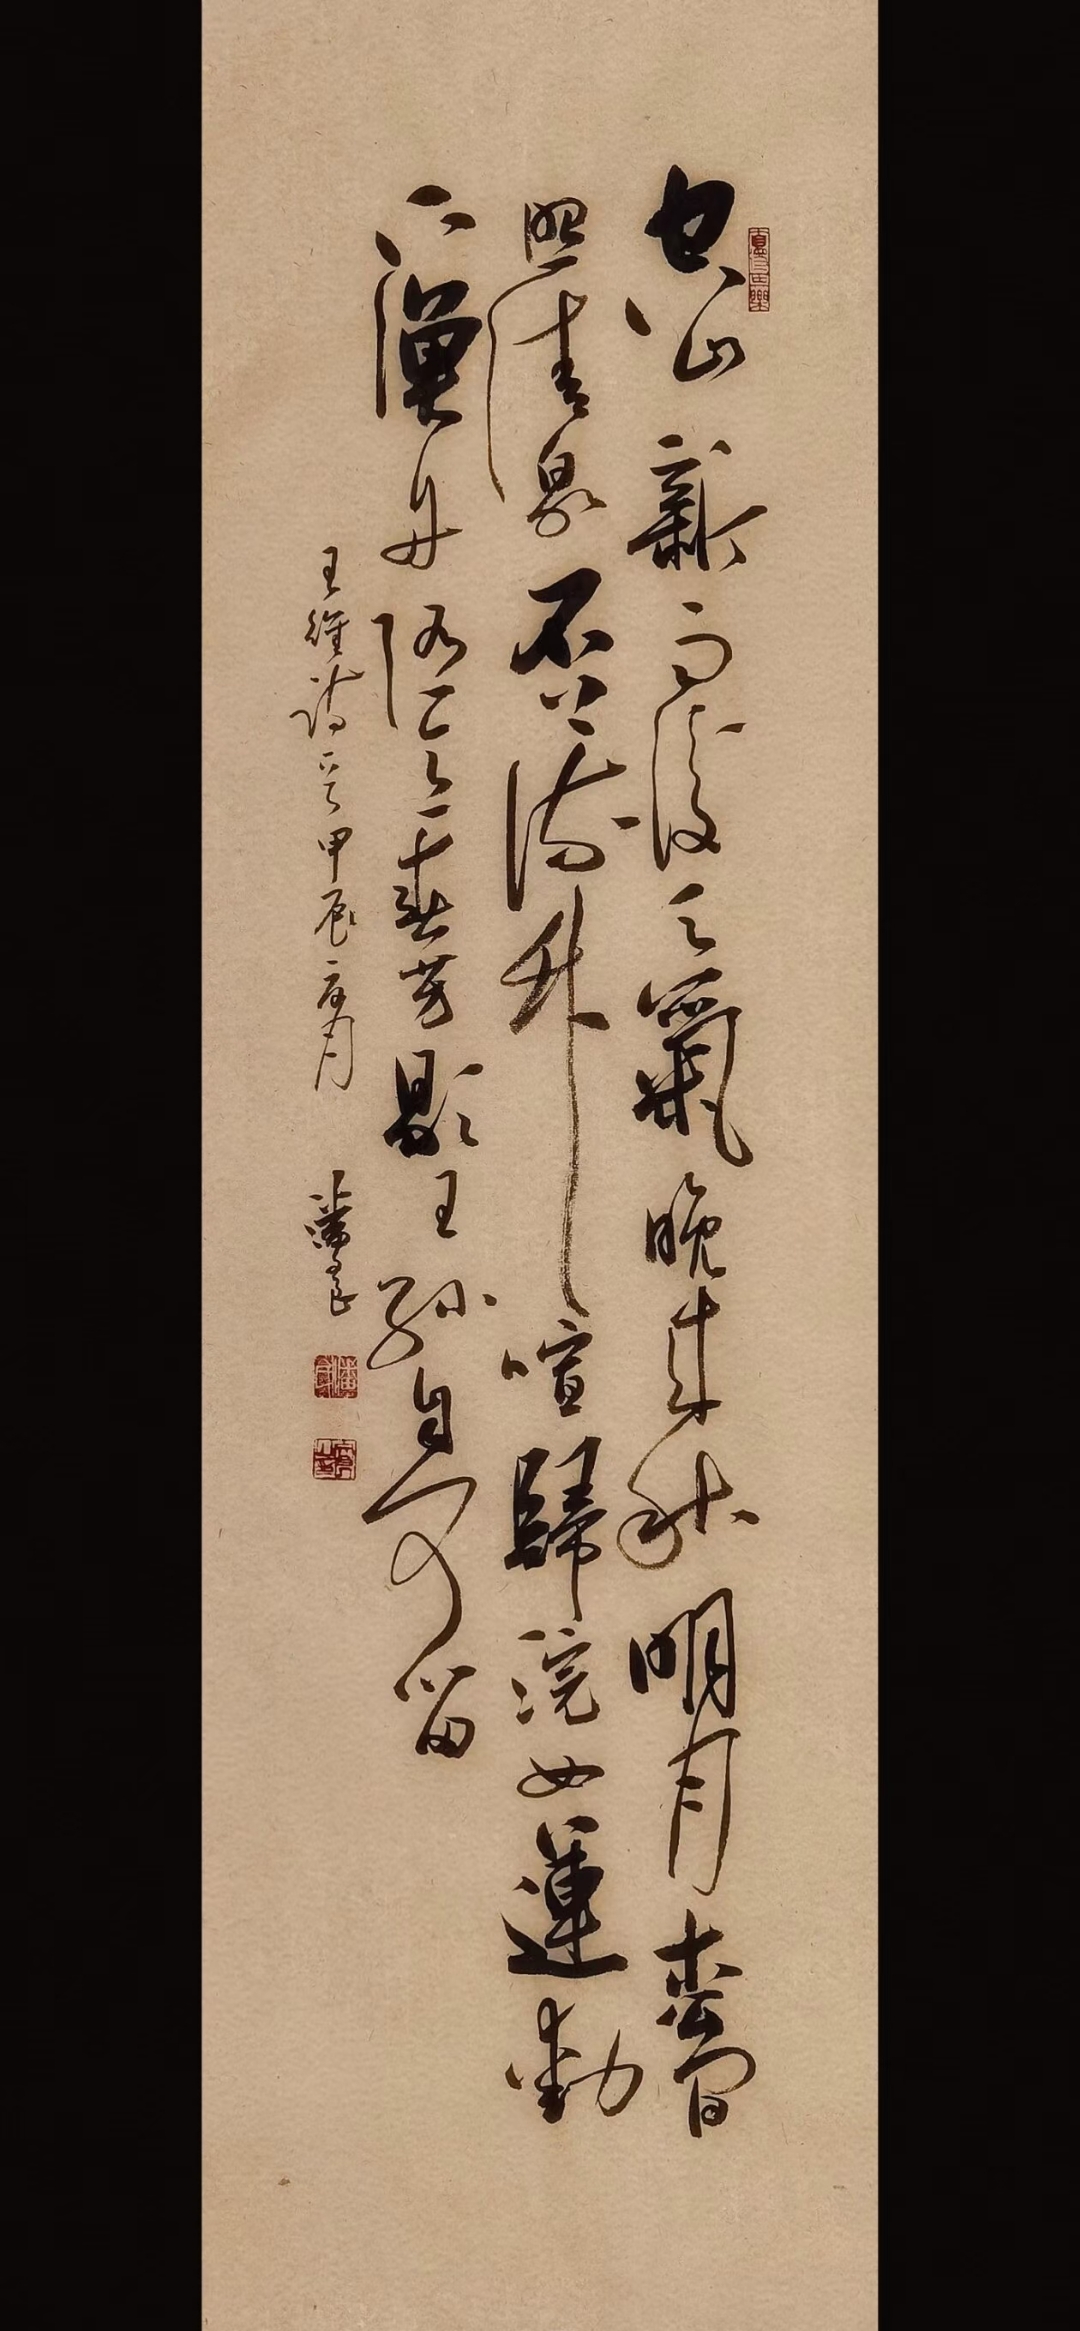 空山新雨後天氣晚來秋明月松間
照清泉石上流竹喧歸浣女蓮動
下漁舟隨意春芳歇王孫自可留
王維詩 甲辰 月 潘